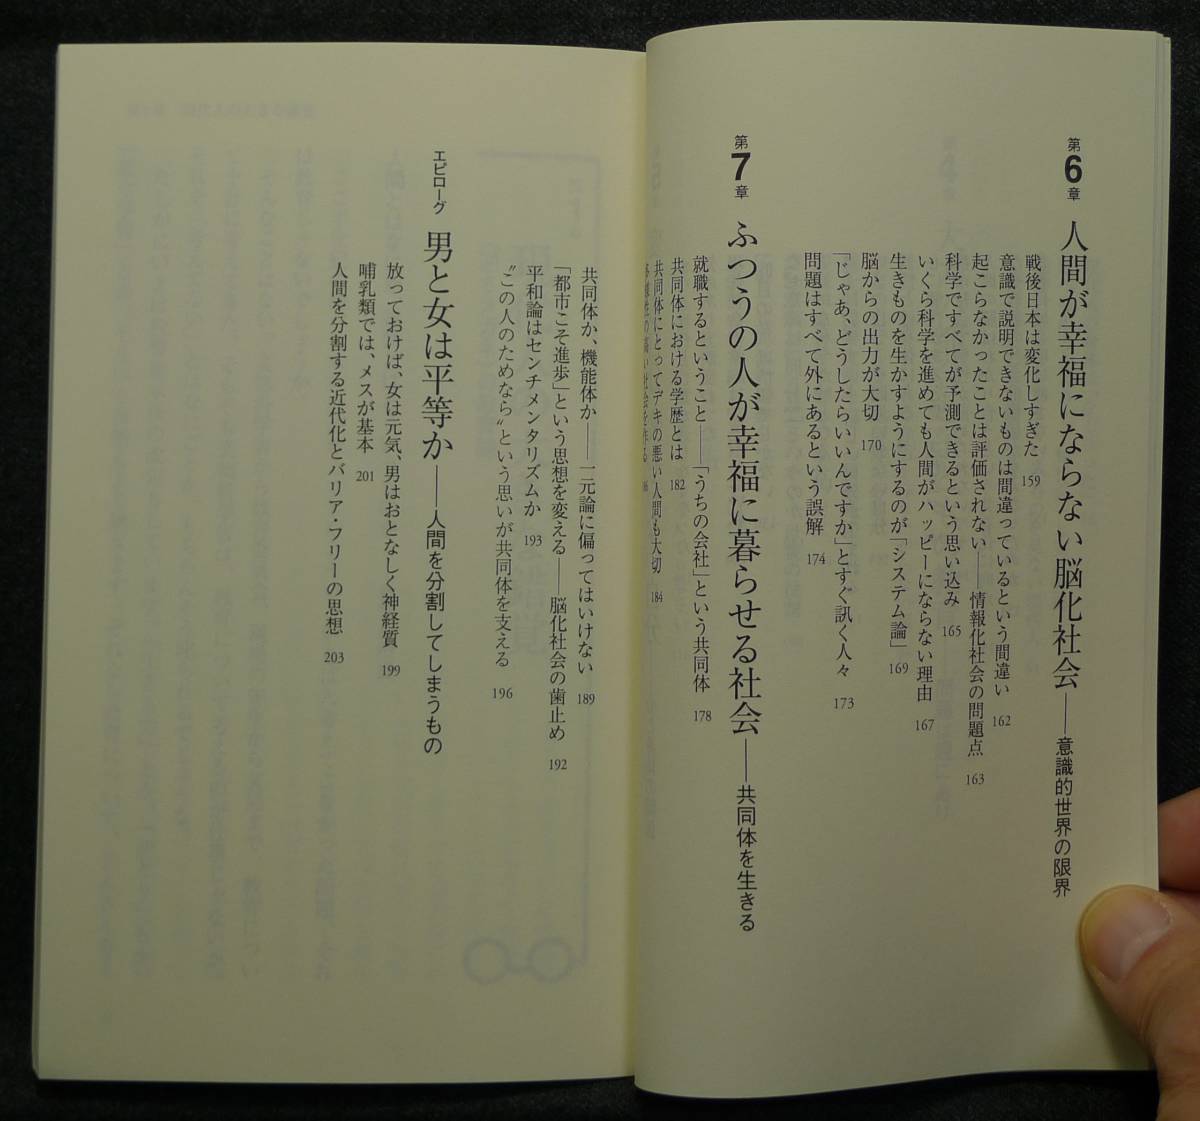 第6章 人間が幸福にならない脳化社会――意識的世界の限界
戦後日本は変化しすぎた 159
意識で説明できないものは間違っているという間違い 162
起こらなかったことは評価されない――情報化社会の問題点 163
科学ですべてが予測できるという思い込み 165
いくら科学を進めても人間がハッピーにならない理由 167
生きものを生かすようにするのが「システム論」 169
脳からの出力が大切 170
「じゃあ、どうしたらいいんですか」とすぐ訊く人々 173
問題はすべて外にあるという誤解 174
第7章 ふつうの人が幸福に暮らせる社会――共同体を生きる
就職するということ――「うちの会社」という共同体 178
共同体における学歴とは 182
共同体にとってデキの悪い人間も大切 184
共同体か、機能体か――二元論に偏ってはいけない 189
「都市こそ進歩」という思想を変える――脳化社会の歯止め 192
平和論はセンチメンタリズムか 193
“この人のためなら”という思いが共同体を支える 196
エピローグ 男と女は平等か――人間を分割してしまうもの
放っておけば、女は元気、男はおとなしく神経質 199
哺乳類では、メスが基本 201
人間を分割する近代化とバリア・フリーの思想 203